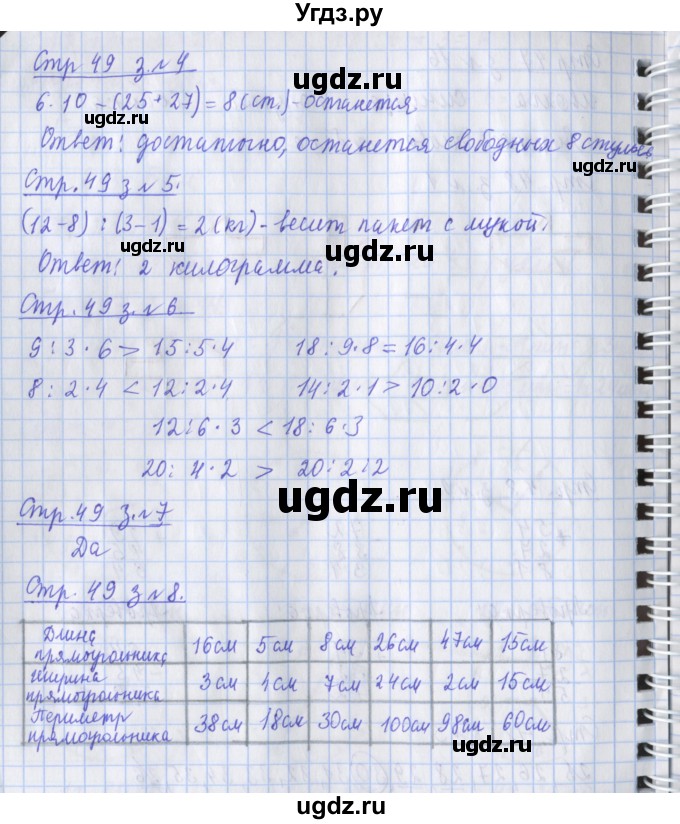 Угдз.ру
Стр 49 з.№ 4
ugdz.ru
6·10-(25+27)=8(ст.)-останется
Ответ: достаточно, останется свободных 8 стульев
ugdz.ru
Стр. 49 з № 5.
(12-8) : (3-1) = 2(кг)-весит пакет с мукой.
ugdz.ru
Ответ: 2 килограмма.
Стр. 49 з.№ 6
9:3·6 > 15:5·4 18:9·8=16:4·4
8:2·4 < 12:2·4 14:2·1 > 10:2·0
12:6·3 < 18:6·3
20:4·2 > 20:2:2
ugdz.ru
Стр.49 з.№7
Да
ugdz.ru
Стр. 49 з №8.
Длина прямоугольника 16см 5см 8см 26см 47см 15см
Ширина прямоугольника 3см 4см 7см 24см 2см 15см
Периметр прямоугольника 38см 18см 30см 100см 98см 60см
ugdz.ru
ugdz.ru
ugdz.ru